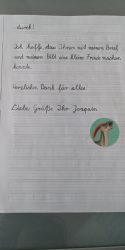 durch!
Ich hoffe, dass Ihnen mit meinem Brief
und meinem Bild eine kleine Freude machen
konnte.
Herzlichen Dank für alles!
Liebe Grüße Ihr Joaquin